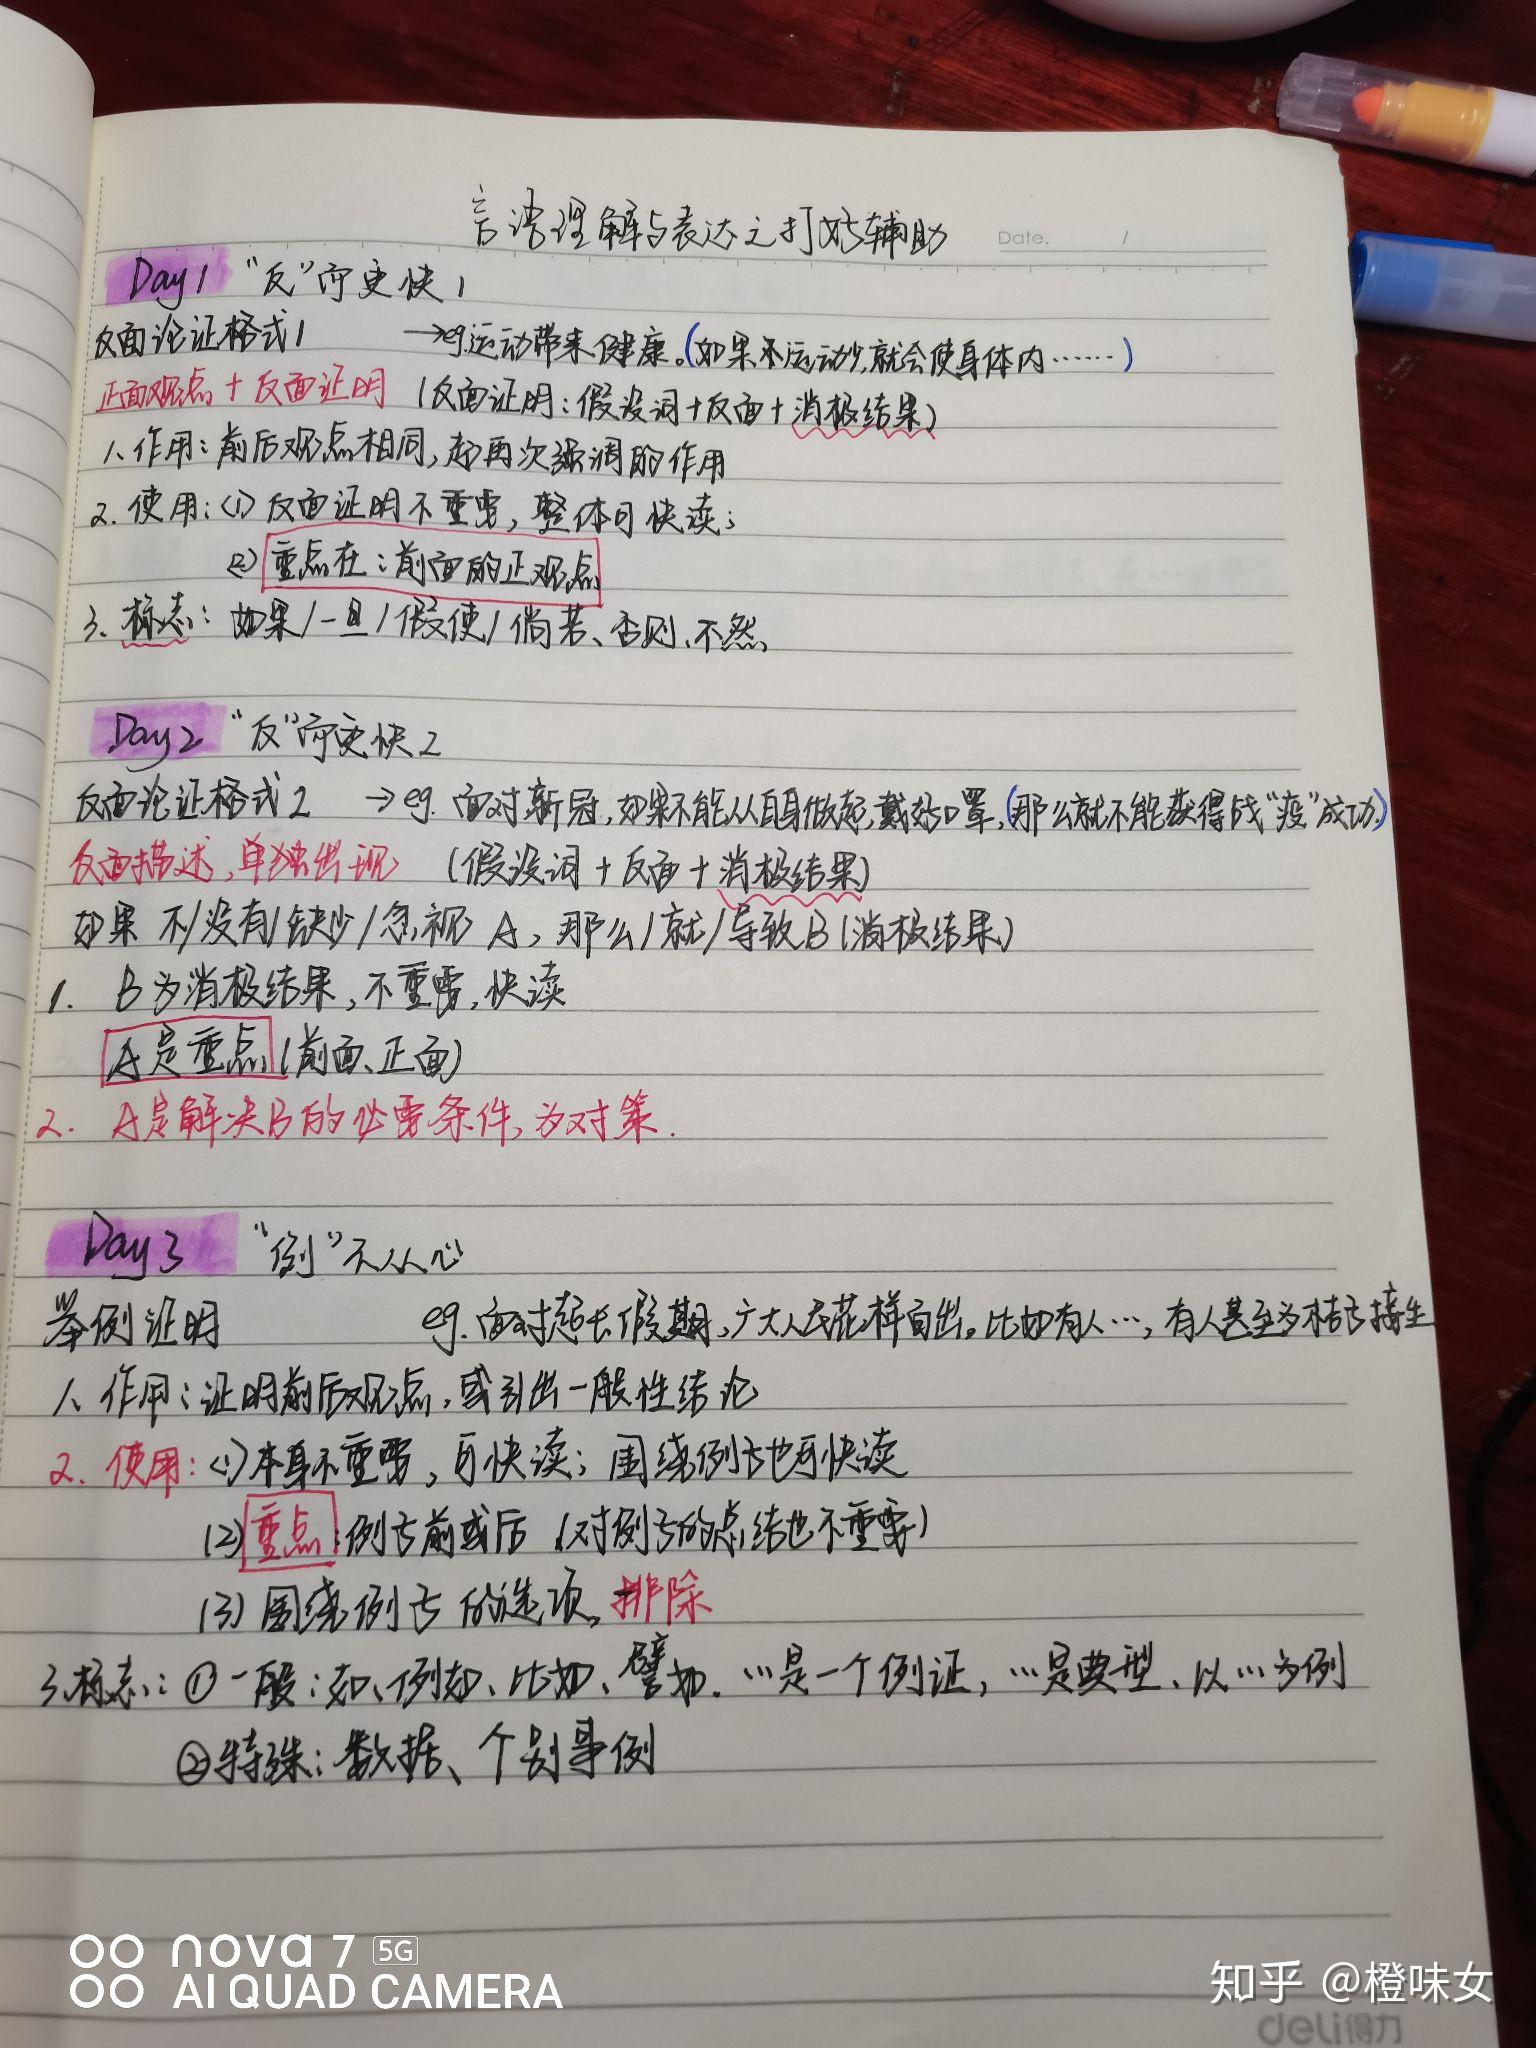 言语理解与表达之打好辅助
Date. /
Day1 "反"而更快1
反面论证格式1 →eg.运动带来健康。(如果不运动,就会使身体内……)
正面观点+反面证明 (反面证明:假设词+反面+消极结果)
1、作用:前后观点相同,起再次强调的作用
2. 使用:(1)反面证明不重要,整体可快读;
(2)重点在:前面的正观点
3. 标志:如果/一旦/假使/倘若、否则、不然,
Day2 "反"而更快2
反面论证格式2 →eg. 面对新冠,如果不能从自身做起,戴好口罩,(那么就不能获得战"疫"成功.)
反面描述,单独出现 (假设词+反面+消极结果)
如果 不/没有/缺少/忽视 A,那么/就/导致B(消极结果)
1. B为消极结果,不重要,快读
A是重点(前面、正面)
2. A是解决B的必要条件,为对策.
Day3 "例"不从心
举例证明 eg.面对超长假期,广大人民花样百出。比如有人…,有人甚至为桔子接生
1、作用:证明前后观点,或引出一般性结论
2. 使用:(1)本身不重要,可快读;围绕例子也可快读
(2)重点:例子前或后(对例子的总结也不重要)
(3)围绕例子的选项,排除
3.标志:①一般:如、例如、比如、譬如. …是一个例证,…是典型、以…为例
②特殊:数据、个别事例
nova 7 5G
AI QUAD CAMERA
知乎 @橙味女
deli得力